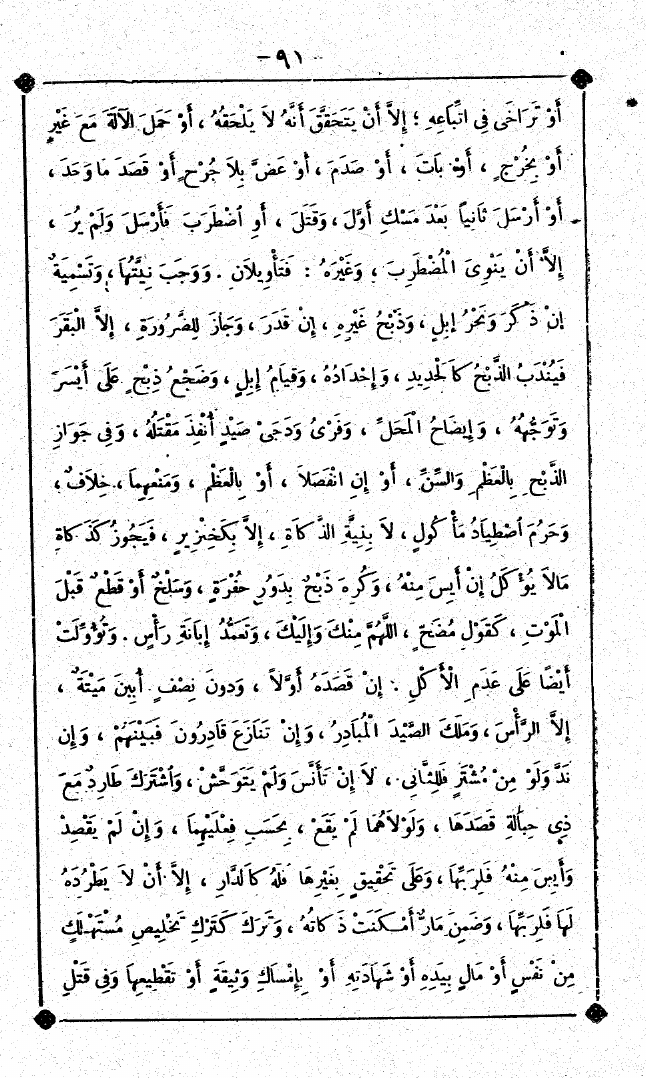 – ٩١ –
أَوْ تَرَاخَى فِى اتِّبَاعِهِ ؛ إِلاَّ أَنْ يَتَحَقَّقَ أَنَّهُ لاَ يَلْحَقُهُ ، أَوْ حَمَلَ الآلَةَ مَعَ غَيْرٍ
أَوْ بِخُرْجٍ ، أَوْ بَاتَ ، أَوْ صَدَمَ ، أَوْ عَضَّ بِلاَ جُرْحٍ أَوْ قَصَدَ مَا وَجَدَ ،
أَوْ أَرْسَلَ ثَانِياً بَعْدَ مَسْكِ أَوَّلَ ، وَقَتَلَ ، أَوِ اضْطَرَبَ فَأَرْسَلَ وَلَمْ يُرَ ،
إِلاَّ أَنْ يَنْوِىَ الْمُضْطَرِبَ ، وَغَيْرَهُ : فَتَأْوِيلاَنِ . وَوَجَبَ نِيَّتُهَا ، وَتَسْمِيَةٌ
إِنْ ذَكَرَ وَنَحْرُ إِبِلٍ ، وَذَبْحُ غَيْرِهِ ، إِنْ قَدَرَ ، وَجَازَ لِلضَّرُورَةِ ، إِلاَّ الْبَقَرَ
فَيُنْدَبُ الذَّبْحُ كَالْحَدِيدِ ، وَإِحْدَادُهُ ، وَقِيَامُ إِبِلٍ ، وَضَجْعُ ذِبْحٍ عَلَى أَيْسَرَ
وَتَوَجُّهُهُ ، وَإِيضَاحُ الْمَحَلِّ ، وَفَرْىُ وَدَجَىْ صَيْدٍ أُنْفِذَ مَقْتَلُهُ ، وَفِى جَوَازِ
الذَّبْحِ بِالْعَظْمِ وَالسِّنِّ ، أَوْ إِنِ انْفَصَلاَ ، أَوْ بِالْعَظْمِ ، وَمَنْعِهِمَا ، خِلاَفٌ ،
وَحَرُمَ اصْطِيَادُ مَأْكُولٍ ، لاَ بِنِيَّةِ الذَّكَاةِ ، إِلاَّ بِكَخِنْزِيرٍ ، فَيَجُوزُ كَذَكَاةِ
مَالاَ يُؤْكَلُ إِنْ أَيِسَ مِنْهُ ، وَكُرِهَ ذَبْحٌ بِدَوْرِ حُفْرَةٍ ، وَسَلْخٌ أَوْ قَطْعٌ قَبْلَ
الْمَوْتِ ، كَقَوْلِ مُضَحٍّ ، اللَّهُمَّ مِنْكَ وَإِلَيْكَ ، وَتَعَمُّدُ إِبَانَةِ رَأْسٍ . وَتُؤُوِّلَتْ
أَيْضًا عَلَى عَدَمِ الْأَكْلِ . إِنْ قَصَدَهُ أَوَّلاً ، وَدُونَ نِصْفٍ أُبِينَ مَيْتَةٌ ،
إِلاَّ الرَّأْسَ ، وَمَلَكَ الصَّيْدَ الْمُبَادِرُ ، وَإِنْ تَنَازَعَ قَادِرُونَ فَبَيْنَهُمْ ، وَإِن
نَدَّ وَلَوْ مِنْ مُشْتَرٍ فَلِلثَّانِى ، لاَ إِنْ تَأَنَّسَ وَلَمْ يَتَوَحَّشْ ، وَاشْتَرَكَ طَارِدٌ مَعَ
ذِى حِبَالَةٍ قَصَدَهَا ، وَلَوْلاَهُمَا لَمْ يَقَعْ ، بِحَسَبِ فِعْلَيْهِمَا ، وَإِنْ لَمْ يَقْصِدْ
وَأَيِسَ مِنْهُ فَلِرَبِّهَا ، وَعَلَى تَحْقِيقٍ بِغَيْرِهَا فَلَهُ كَالدَّارِ ، إِلاَّ أَنْ لاَ يَطْرُدَهُ
لَهَا فَلِرَبِّهَا ، وَضَمِنَ مَارٌّ أَمْكَنَتْ ذَكَاتُهُ ، وَتَرَكَ كَتَرْكِ تَخْلِيصِ مُسْتَهْلَكٍ
مِنْ نَفْسٍ أَوْ مَالٍ بِيَدِهِ أَوْ شَهَادَتِهِ أَوْ بِإِمْسَاكِ وَثِيقَةٍ أَوْ تَقْطِيعِهَا وَفِى قَتْلِ